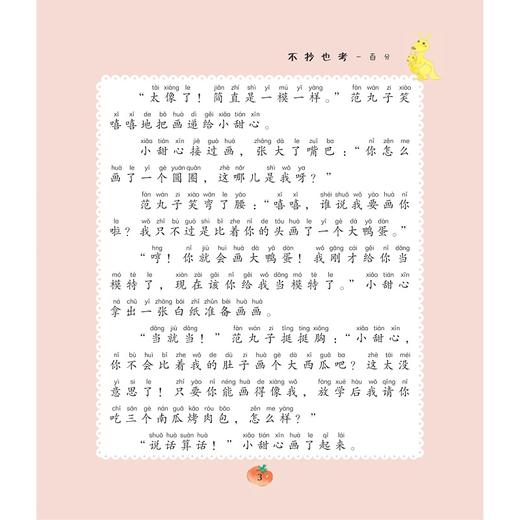 不抄也考一百分
tài xiàng le jiǎn zhí shì yī mú yī yàng fàn wán zi xiào
“太像了！简直是一模一样。”范丸子笑
xī xī de bǎ huà dì gěi xiǎo tián xīn
嘻嘻地把画递给小甜心。
xiǎo tián xīn jiē guò huà zhāng dà le zuǐ ba nǐ zěn me
小甜心接过画，张大了嘴巴：“你怎么
huà le yī gè yuán quān zhè nǎr shì wǒ ya
画了一个圆圈，这哪儿是我呀？”
fàn wán zi xiào wān le yāo xī xī shéi shuō wǒ yào huà nǐ
范丸子笑弯了腰：“嘻嘻，谁说我要画你
la wǒ zhǐ bù guò shì bǐ zhe nǐ de tóu huà le yī gè dà yā dàn
啦？我只不过是比着你的头画了一个大鸭蛋。”
hng nǐ jiù huì huà dà yā dàn wǒ gāng cái gěi nǐ dāng
“哼！你就会画大鸭蛋！我刚才给你当
mó tè le xiàn zài gāi nǐ gěi wǒ dāng mó tè le xiǎo tián xīn
模特了，现在该你给我当模特了。”小甜心
ná chū yī zhāng bái zhǐ zhǔn bèi huà huà
拿出一张白纸准备画画。
dāng jiù dāng fàn wán zi tǐng tǐng xiōng xiǎo tián xīn
“当就当！”范丸子挺挺胸：“小甜心，
nǐ bù huì bǐ zhe wǒ de dù zi huà gè dà xī guā ba zhè tài méi
你不会比着我的肚子画个大西瓜吧？这太没
yì si le zhǐ yào nǐ néng huà de xiàng wǒ fàng xué hòu wǒ qǐng nǐ
意思了！只要你能画得像我，放学后我请你
chī sān gè nán guā kǎo ròu bāo zěn me yàng
吃三个南瓜烤肉包，怎么样？”
shuō huà suàn huà xiǎo tián xīn huà le qǐ lái
“说话算话！”小甜心画了起来。
3